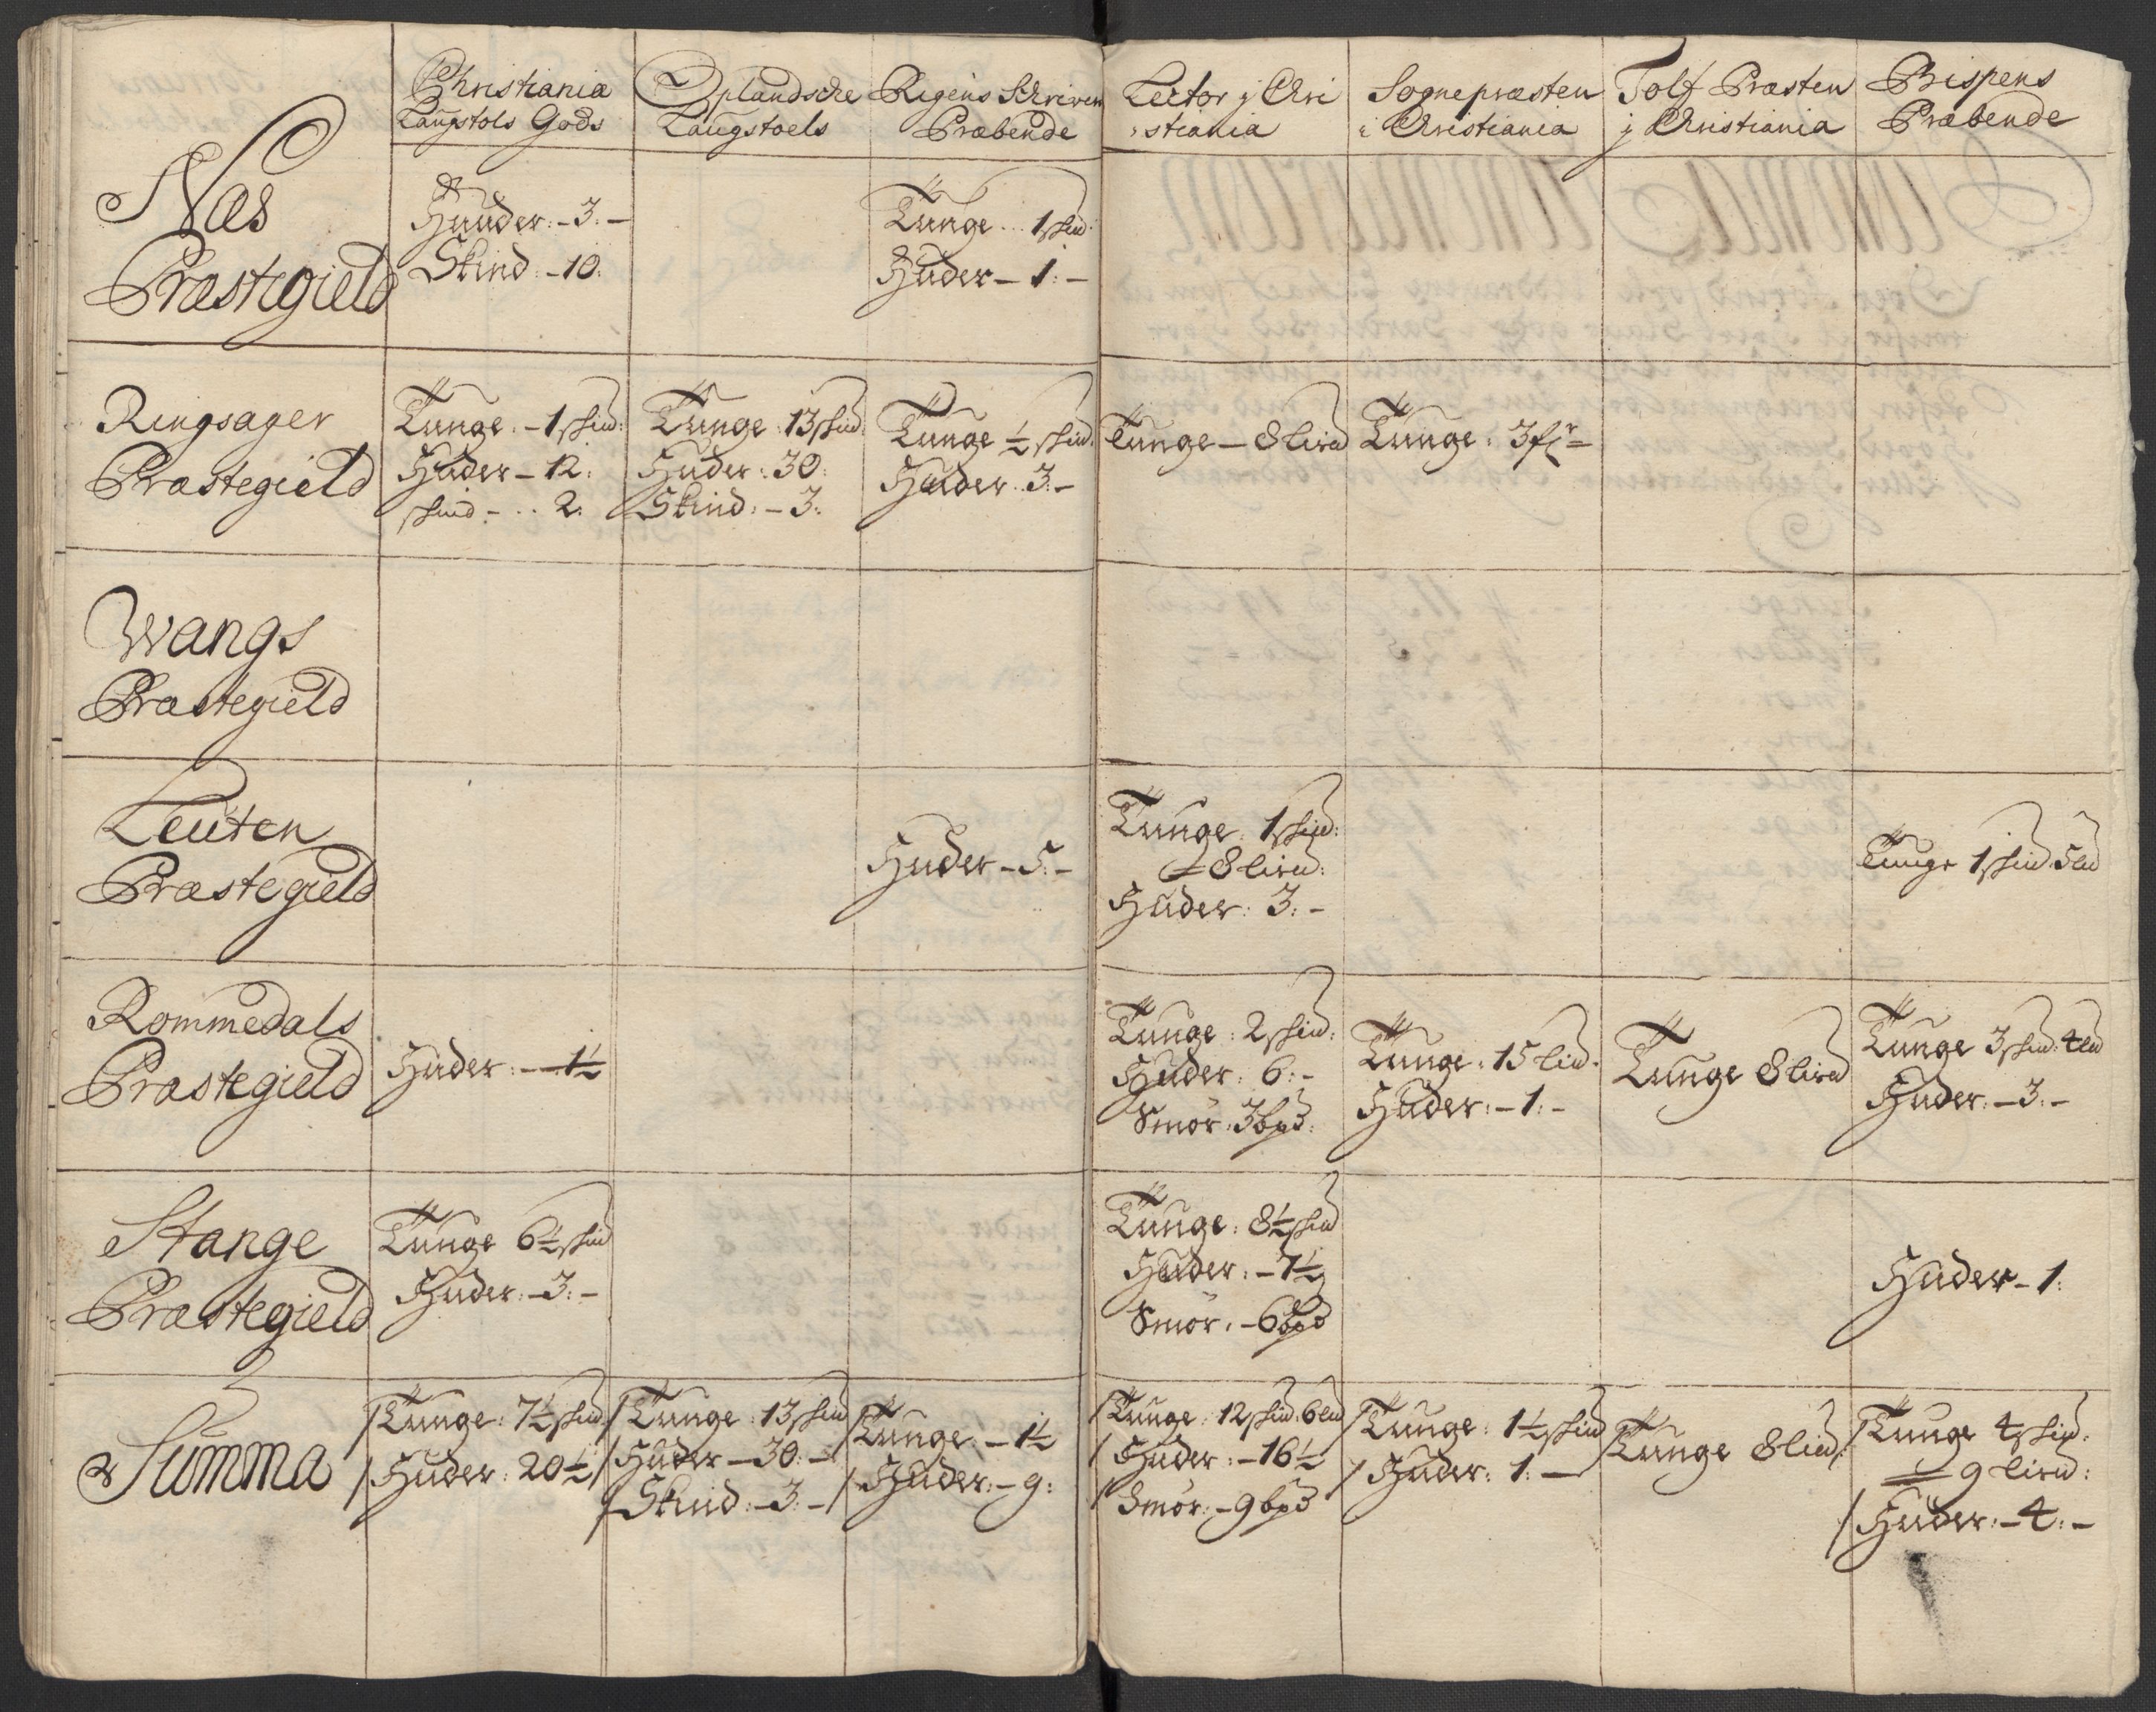 Christiania
Laugstols Gods
Oplandsche
Laugstoels
Rigens Schriven
Præbende
Lector j Chri
stiania
Sognepræsten
i Christiania
Tolf Præsten
j Christiania
Bispens
Præbende
Næs
Præstegield
Huuder: - 3: -
Skind - 10:
Tunge 1 skud:
Huder - 1: -
Ringsager
Præstegield
Tunge - 1 skud:
Huder - 12:
skind - 2:
Tunge 13 skud
Huder: 30:
Skind: - 3:
Tunge ½ skud:
Huder 3: -
Tunge - 8 lisd
Tunge: 3 fr -
Wangs
Præstegield
Leuten
Præstegield
Huder - 5: -
Tunge: 1 skud:
8 lisd:
Huder: 3: -
Tunge 1 skud 5 ld
Rommedals
Præstegield
Huder: - 1½
Tunge: 2 skud:
Huder: 6: -
Smör: 3 bpd:
Tunge: 15 lisd:
Huder: - 1: -
Tunge 8 lisd
Tunge 3 skud: 4 ld
Huder: - 3: -
Stange
Præstegield
Tunge 6½ skud
Huder: - 3: -
Tunge: 8½ skud
Huder: - 7½
Smör: - 6 bpd
Huder - 1:
Summa
Tunge: 7½ skud
Huder: 20½
Tunge: 13 skud
Huder - 30: -
Skind: - 3: -
Tunge: - 1½
Huder: - 9:
Tunge: 12 skud: 6 ld
Huder: - 16½
Smör: - 9 bpd
Tunge: 1½ skud
Huder: 1: -
Tunge 8 lisd
Tunge 4 skud:
9 lisd:
Huder: - 4: -